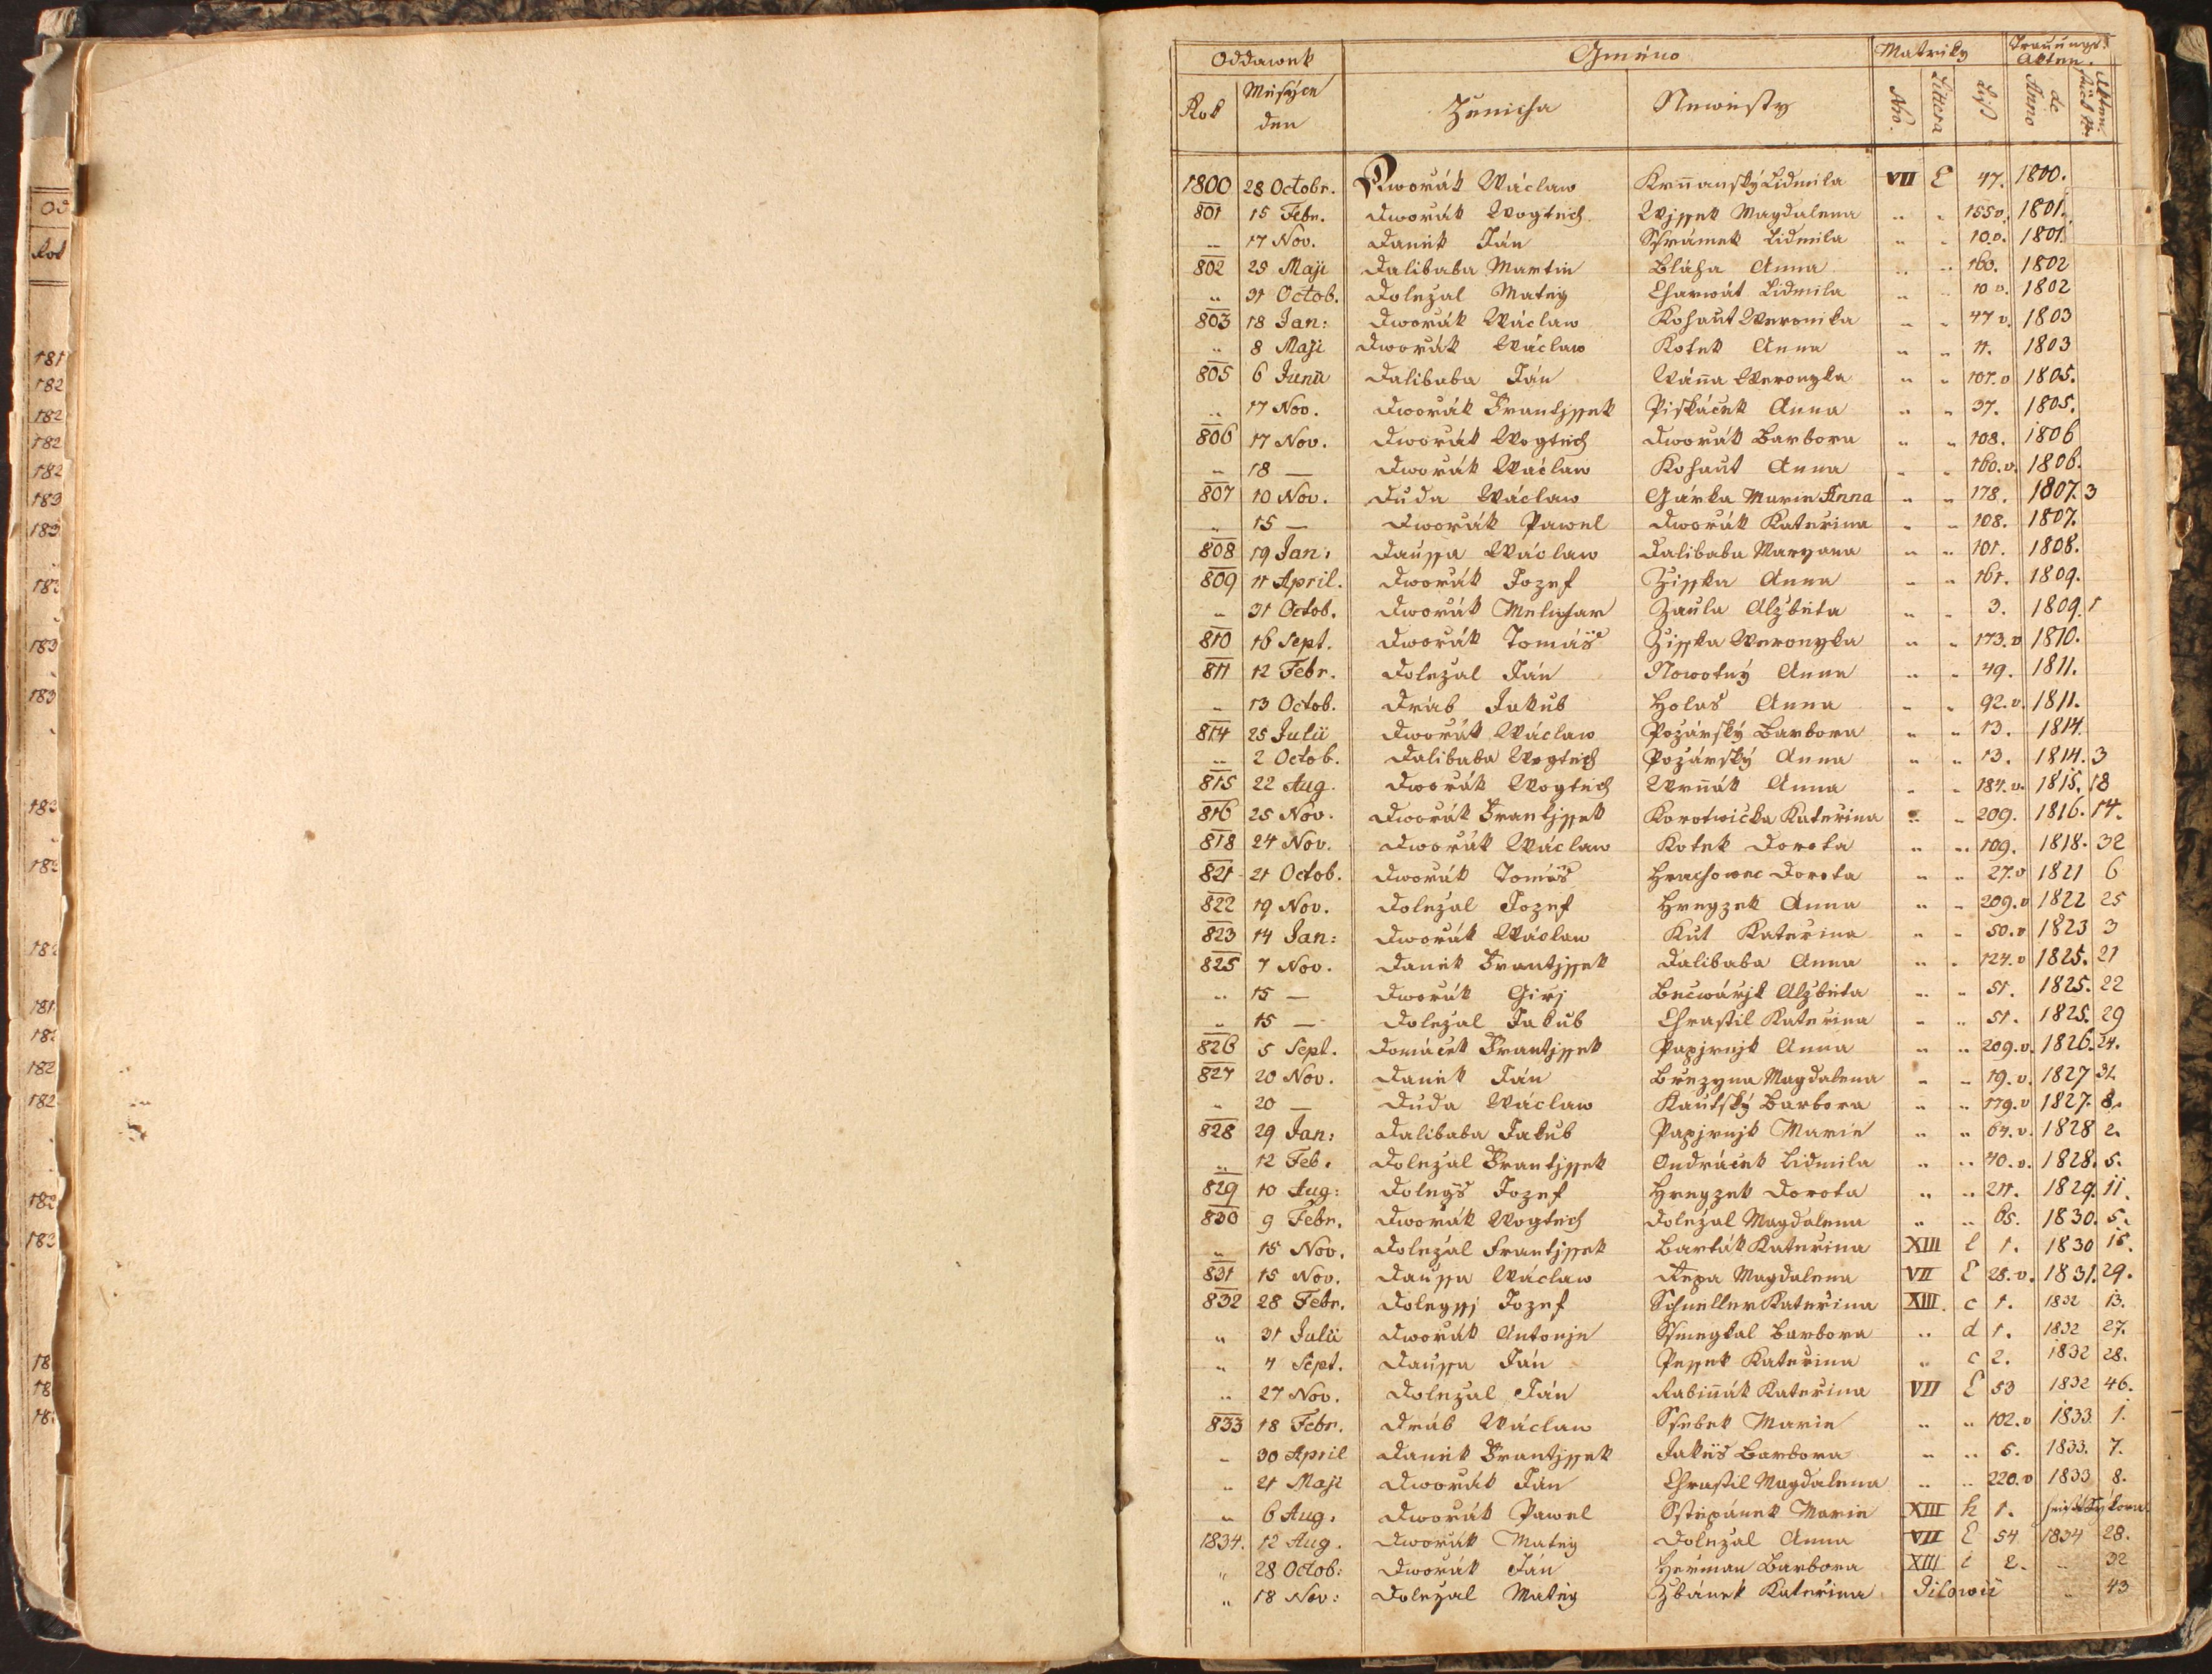 Od
Rok
181
182
182
182
182
183
183
183
183
183
183
182
182
181
182
182
182
182
183
18
18
18
Oddawek Gméno Matriky Trauungs-
Akten.
Rok Měsýcn den Ženicha Newěsty Nro. Littera List de Anno Akten-stück N.
1800 28 Octobr. Dwořák Wáclaw Krnanský Lidmila VII E 47. 1800.
801 15 Febr. Dworák Wogtěch Wjssek Magdalena " " 155v. 1801.
" 17 Nov. Daněk Ján Ssrámek Lidmila " " 10.v. 1801.
802 25 Maji Dalibaba Martin Bláha Anna " " 160. 1802
" 31 Octob. Doležal Matěg Charwát Lidmila " " 10 v. 1802
803 18 Jan: Dworák Wáclaw Kohaut Weronika " " 47 v. 1803
" 8 Maji Dworák Wáclaw Kotek Anna " " 11. 1803
805 6 Junii Dalibaba Ján Wána Weronyka " " 107.v 1805.
" 17 Nov. Dworák Frantjssek Piskáček Anna " " 37. 1805.
806 17 Nov. Dworák Wogtěch Dworák Barbora " " 108. 1806
" 18 — Dworák Wáclaw Kohaut Anna " " 160.v. 1806.
807 10 Nov. Duda Wáclaw Gárka Marie Anna " " 178. 1807. 3
" 15 — Dworák Pawel Dworák Kateřina " " 108. 1807.
808 19 Jan: Daussa Wáclaw Dalibaba Maryana " " 101. 1808.
809 11 April. Dworák Jozef Zisska Anna " " 161. 1809.
" 31 Octob. Dworák Melichar Zaula Alžběta " " 3. 1809. 1
810 16 Sept. Dworák Tomáš Zisska Weronyka " " 173.v 1810.
811 12 Febr. Doležal Ján Nowotný Anna " " 49. 1811.
" 13 Octob. Dráb Jakub Holas Anna " " 92.v. 1811.
814 25 Julii Dworák Wáclaw Požárský Barbora " " 13. 1814.
" 2 Octob. Dalibaba Wogtěch Požárský Anna " " 13. 1814. 3
815 22 Aug. Dworák Wogtěch Wrnák Anna " " 184.v. 1815. 18
816 25 Nov. Dworák Frantjssek Korotwička Kateřina " " 209. 1816. 14.
818 24 Nov. Dworák Wáclaw Kotek Dorota " " 109. 1818. 32
821 21 Octob. Dworák Tomáš Hrachowec Dorota " " 27.v 1821 6
822 19 Nov. Doležal Jozef Hregzek Anna " " 209.v 1822 25
823 14 Jan: Dworák Wáclaw Kut Kateřina " " 50.v 1823 3
825 7 Nov. Daněk Frantjssek Dalibaba Anna " " 124.v 1825. 21
" 15 — Dworák Girj Bečwárjk Alžběta " " 51. 1825. 22
" 15 — Doležal Jakub Chrastil Kateřina " " 51. 1825. 29
826 5 Sept. Domáček Frantjssek Papjrnjk Anna " " 209.v. 1826. 24.
827 20 Nov. Daněk Ján Březyna Magdalena " " 19.v. 1827 31.
" 20 — Duda Wáclaw Kautský Barbora " " 179.v 1827. 8.
828 29 Jan: Dalibaba Jakub Papjrnjk Marie " " 64.v. 1828 2.
" 12 Feb. Doležal Frantjssek Ondráček Lidmila " " 40.v. 1828. 5.
829 10 Aug: Dolegš Jozef Hregzek Dorota " " 211. 1829. 11.
830 9 Febr. Dworák Wogtěch Doležal Magdalena " " 65. 1830. 5.
" 15 Nov. Doležal Frantjssek Barták Kateřina XIII l 1. 1830 15.
831 15 Nov. Daussa Wáclaw Řepa Magdalena VII E 28.v. 1831. 29.
832 28 Febr. Dolegssj Jozef Schneller Kateřina XIII. c 1. 1832 13.
" 31 Julii Dworák Antonjn Ssmegkal Barbora " d 1. 1832 27.
" 4 Sept. Daussa Ján Pessek Kateřina " c 2. 1832 28.
" 27 Nov. Doležal Ján Rabinák Kateřina VII E 53 1832 46.
833 18 Febr. Dráb Wáclaw Ssebek Marie " " 102.v 1833. 1.
" 30 April Daněk Frantjssek Jakeš Barbora " " 5. 1833. 7.
" 21 Maji Dworák Ján Chrastil Magdalena " " 220.v 1833 8.
" 6 Aug. Dworák Pawel Sstěpánek Marie XIII h 1.
1834. 12 Aug. Dworák Matěg Doležal Anna VII E 54 1834 28.
" 28 Octob: Dworák Ján Heřman Barbora XIII i 2. " 32
" 18 Nov: Doležal Matěg Zbánek Kateřina " 43